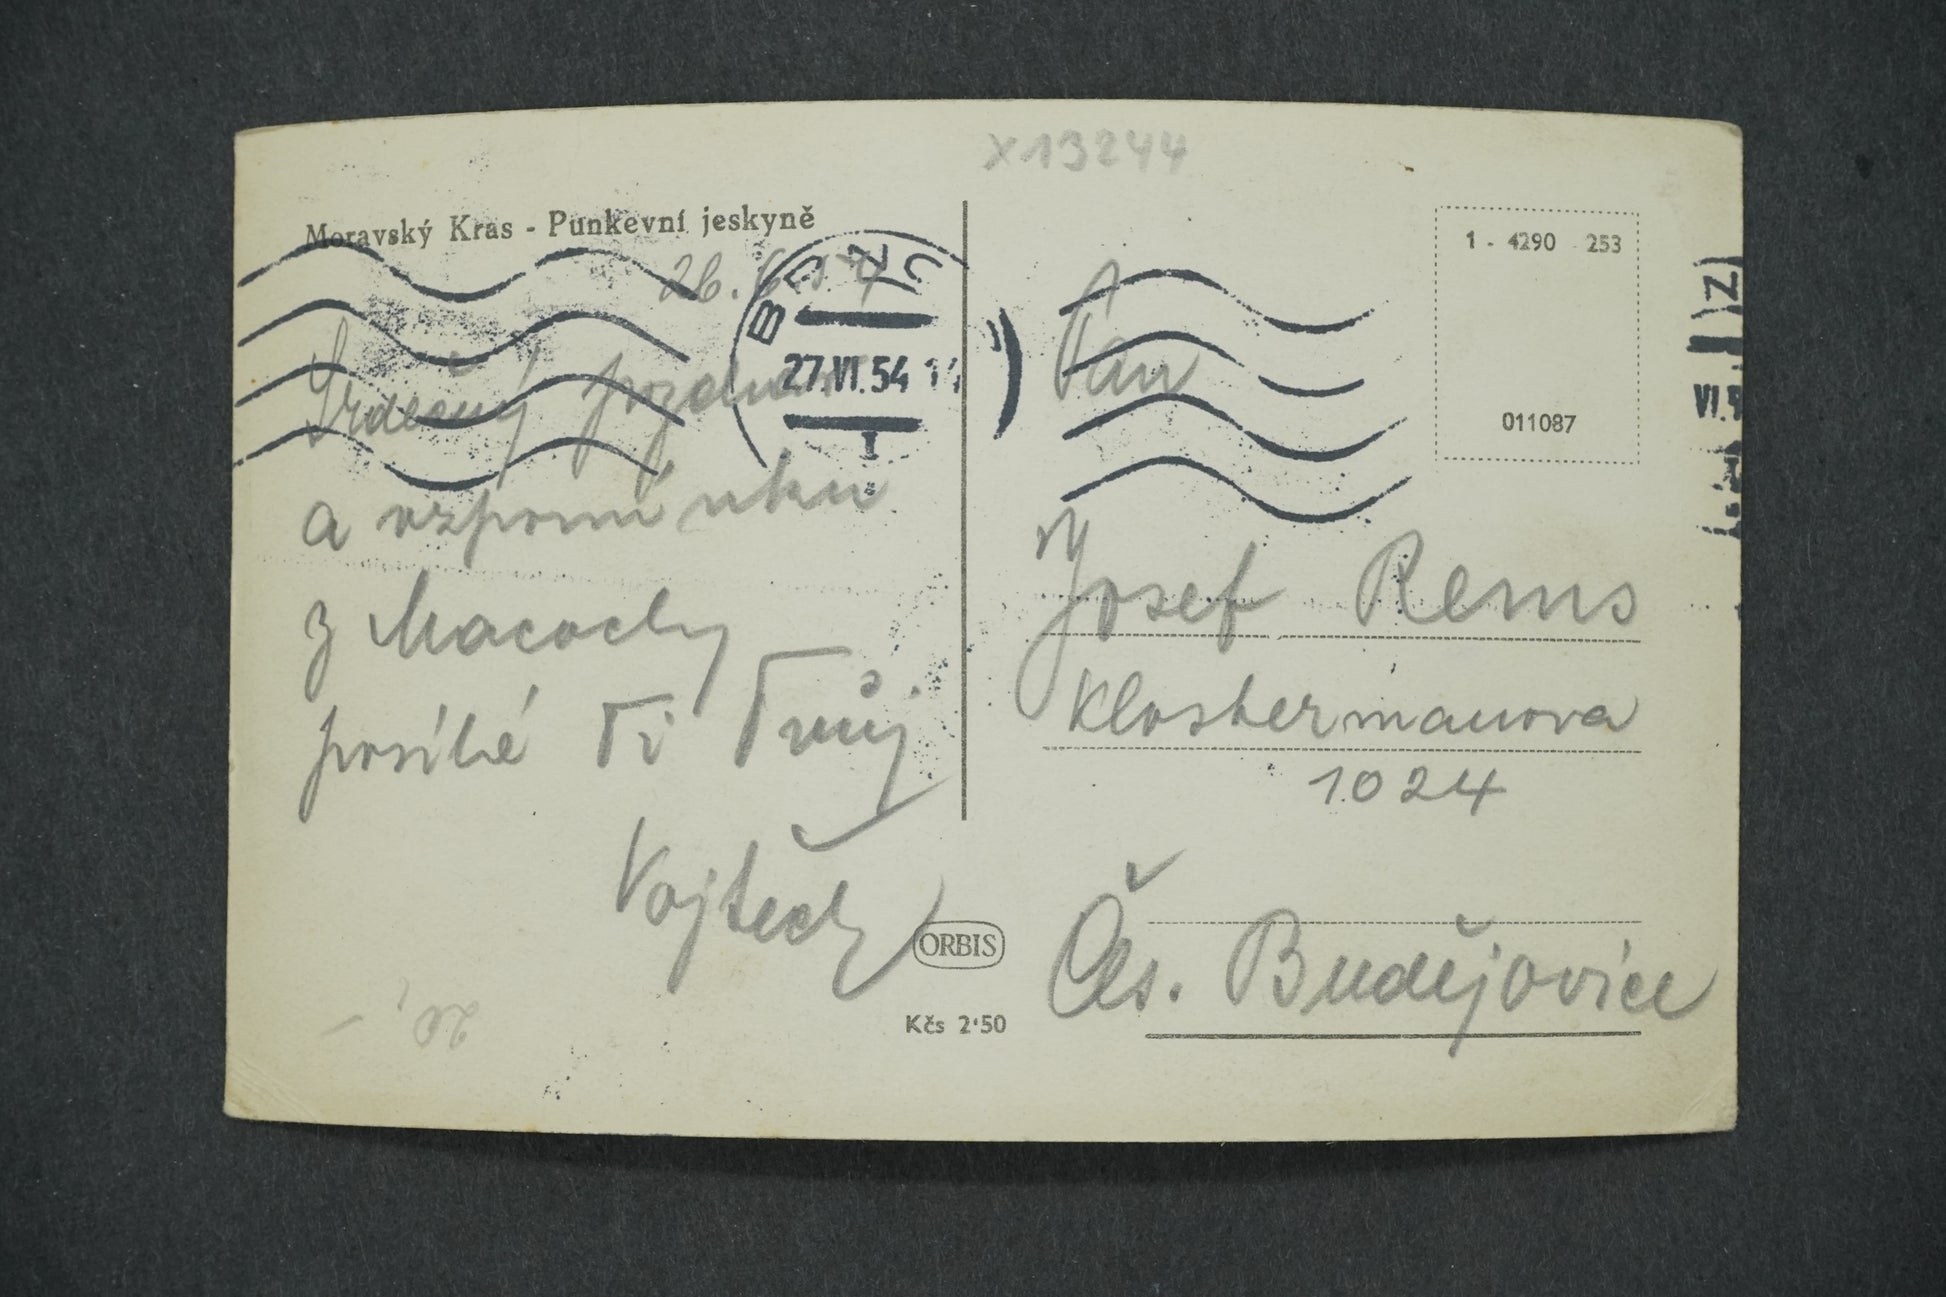 X13244
Moravský Kras - Punkevní jeskyně
26. 6. 54
Srdečný pozdrav
a vzpomínku
z Macochy
posílá Ti Tvůj
Vojtěch
27.VI.54
ORBIS
Kčs 2·50
20,-
1 - 4290 253
011087
Pan
Josef Rems
Klostermanova
1024
Čes. Budějovice
VI.5